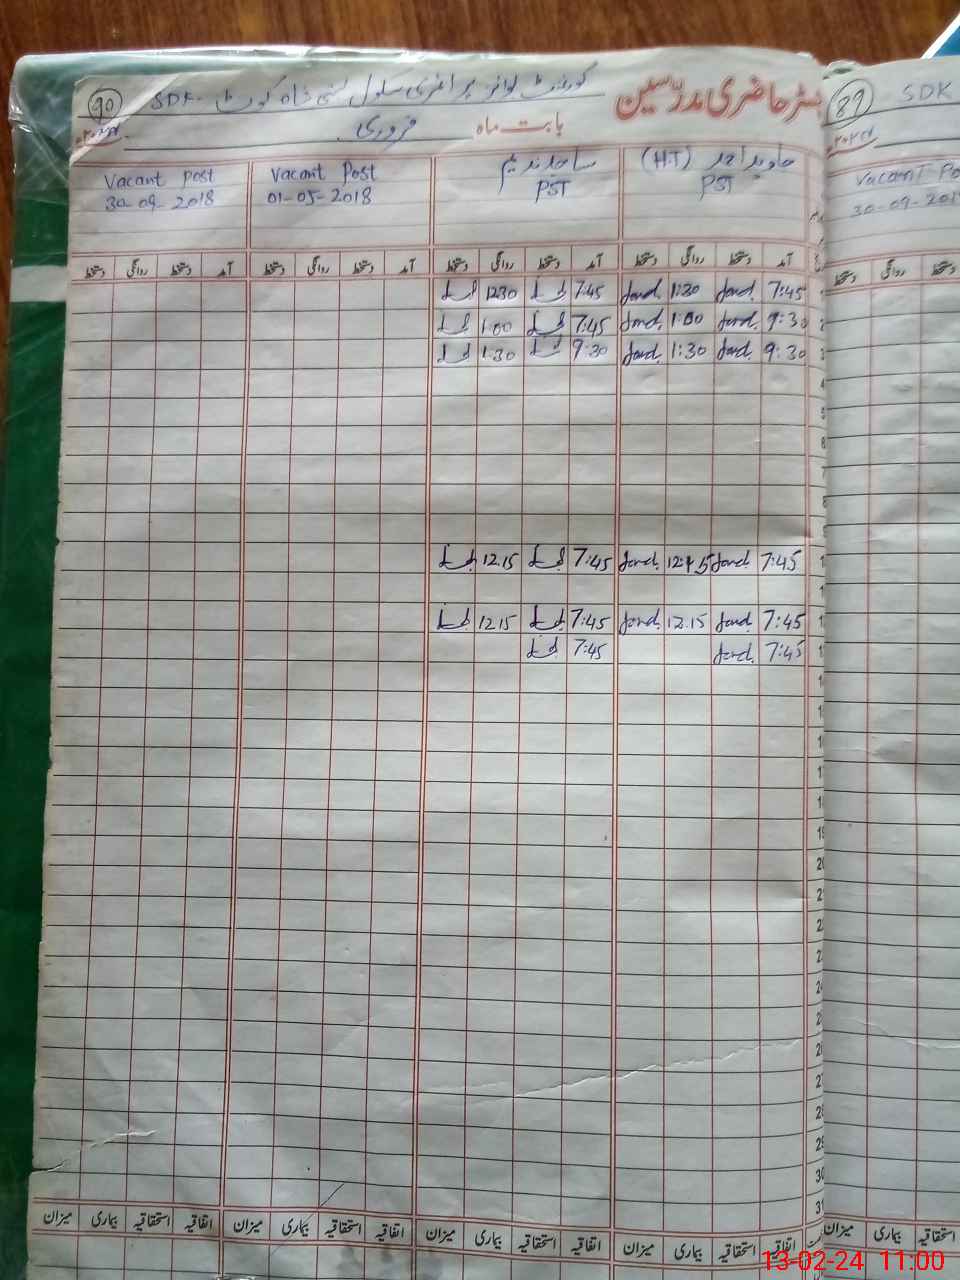 90
گورنمنٹ بوائز پرائمری سکول بستی شاہ کوٹ SDK
رجسٹر حاضری مدرسین
بابت ماہ فروری
جاوید احمد (H.T) PST
ساجد ندیم PST
Vacant Post 01-05-2018
Vacant Post 30-09-2018
آمد دستخط روانگی دستخط آمد دستخط روانگی دستخط آمد دستخط روانگی دستخط آمد دستخط روانگی دستخط
7:45 Javed 1:30 Javed 7:45 12:30
9:30 Javed 1:00 Javed 7:45 1:00
9:30 Javed 1:30 Javed 9:30 1:30
7:45 Javed 12:15 Javed 7:45 12.15
7:45 Javed 12.15 Javed 7:45 12.15
7:45 Javed 7:45
19
20
21
22
23
24
25
26
27
28
29
30
31
اتفاقیہ استحقاقیہ بیماری میزان اتفاقیہ استحقاقیہ بیماری میزان اتفاقیہ استحقاقیہ بیماری میزان اتفاقیہ استحقاقیہ بیماری میزان
89
SDK
Vacant Po
30-09-201
دستخط روانگی دستخط
میزان بیماری استحقاقیہ
13-02-24 11:00